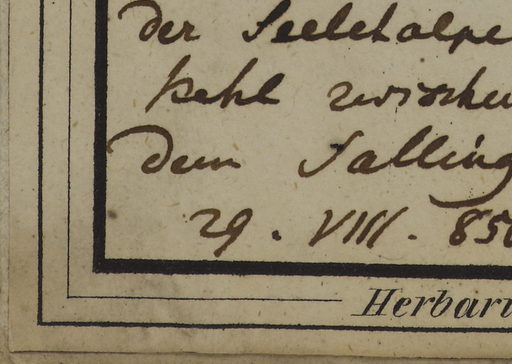 der Seelehalpe
kehl zwischen
dem Salling
29. VIII. 850
Herbaru